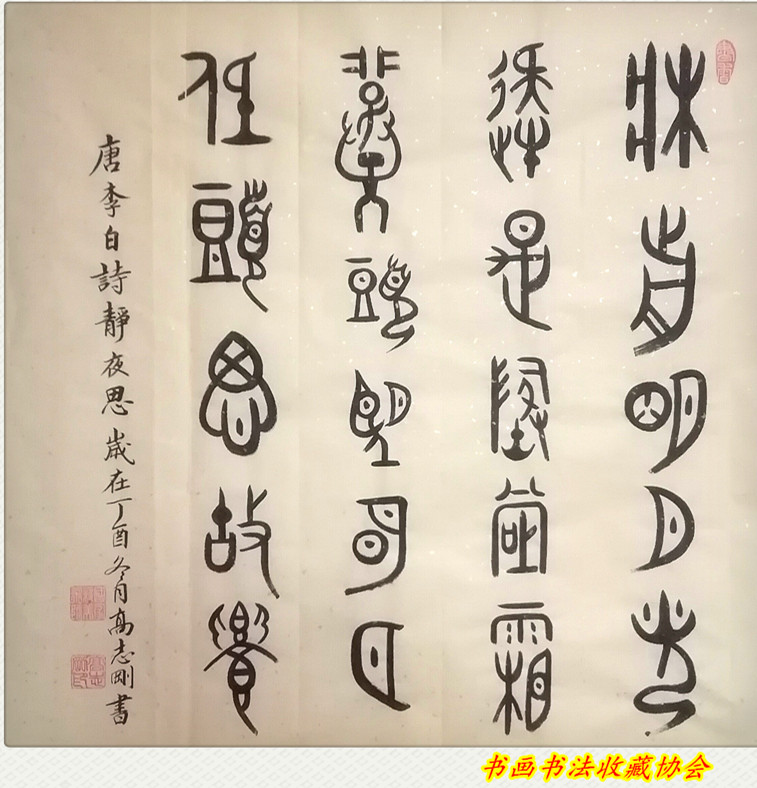 牀前明月光
疑是地上霜
舉頭望明月
低頭思故鄉
唐李白詩靜夜思歲在丁酉冬月高志剛書
书画书法收藏协会